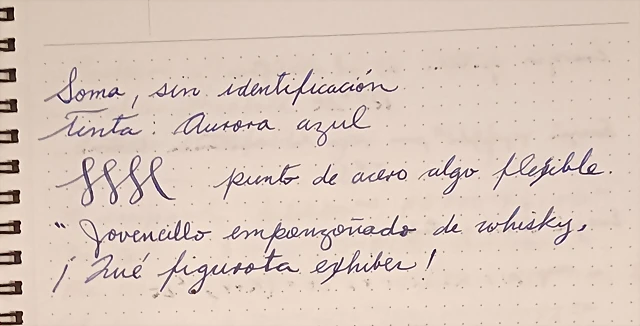 Soma, sin identificación
Tinta: Aurora azul
punto de acero algo flexible.
"Jovencillo emponzoñado de whisky,
¡Qué figurota exhibes!